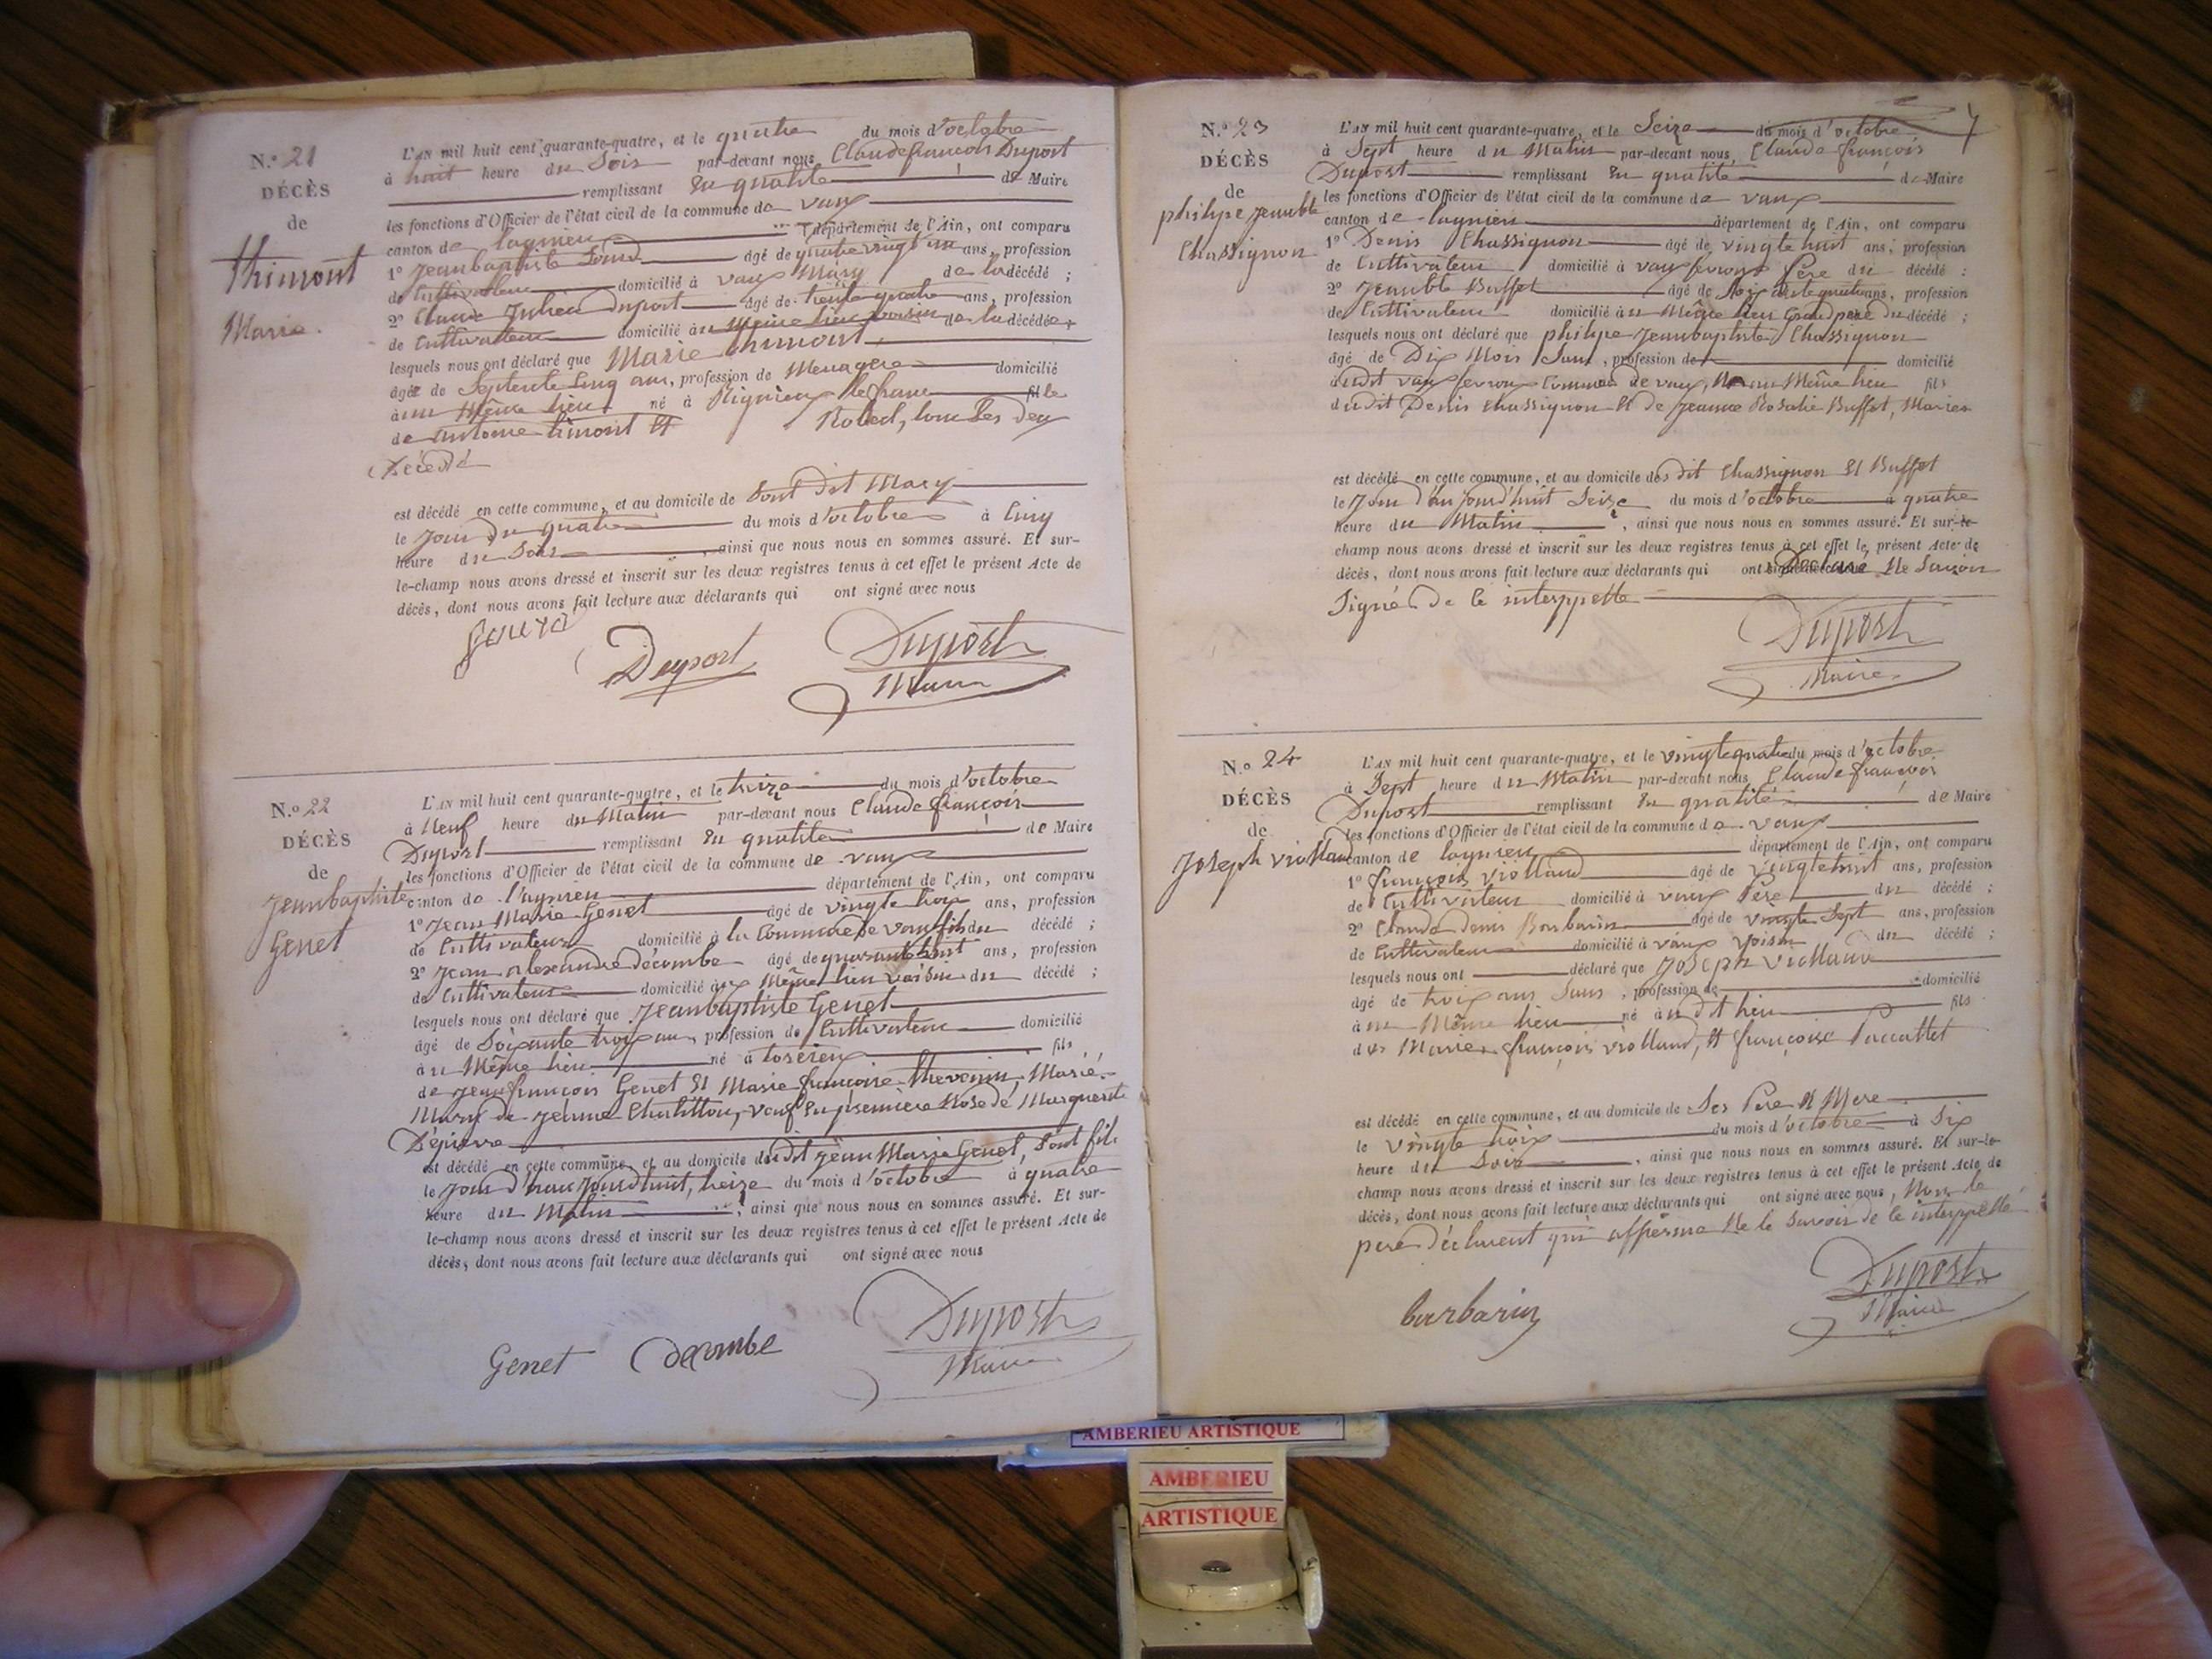 N.º 21
DÉCÈS
de
Thimont
Marie.
L'AN mil huit cent quarante-quatre, et le quatre du mois d'octobre
à huit heure du Soir par-devant nous Claude françois Duport
remplissant En qualité de Maire
les fonctions d'Officier de l'état civil de la commune de vaux
canton de lagnieu département de l'Ain, ont comparu
1º Jeanbaptiste âgé de quatre vingt un ans, profession
de Cultivateur domicilié à vaux Mary de la décédé ;
2º Claude Julien Duport âgé de trente quatre ans, profession
de Cultivateur domicilié à u Même lieu voisin de la décédée ;
lesquels nous ont déclaré que Marie thimont,
âgée de Septente Cinq ans, profession de Menagere domicilié
à au Même lieu né à Rignieu le franc fille
de Antoine timont Et Robert, tous les deux
Décédé
est décédé en cette commune, et au domicile de Sont dit Mary
le jour du quatre du mois d'octobre à Cinq
heure du Soir, ainsi que nous nous en sommes assuré. Et sur-
le-champ nous avons dressé et inscrit sur les deux registres tenus à cet effet le présent Acte de
décès, dont nous avons fait lecture aux déclarants qui ont signé avec nous
Duport
Duport
Maire
N.º 22
DÉCÈS
de
Jeanbaptiste
Genet
L'AN mil huit cent quarante-quatre, et le treize du mois d'octobre
à Neuf heure du Matin par-devant nous Claude françois
Duport remplissant En qualité de Maire
les fonctions d'Officier de l'état civil de la commune de vaux
canton de l'agnieu département de l'Ain, ont comparu
1º Jean Marie Genet âgé de vingte trois ans, profession
de Cultivateur domicilié à la Commune de vaux fils du décédé ;
2º Jean alexandre décombe âgé de quarante huit ans, profession
de Cultivateur domicilié à u Même lieu voisin du décédé ;
lesquels nous ont déclaré que Jeanbaptiste Genet
âgé de Soixante trois ans, profession de Cultivateur domicilié
à u Même lieu né à torcieu fils
de Jeanfrançois Genet Et Marie françoise thevenin, Marié.
Mary de Jeanne Chatillon, veuf En première Nose de Marguerite
D'épierre
est décédé en cette commune, et au domicile du dit Jean Marie Genet, Sont fils
le Jour d'haujourdhuit, treize du mois d'octobre à quatre
heure du Matin, ainsi que nous nous en sommes assuré. Et sur-
le-champ nous avons dressé et inscrit sur les deux registres tenus à cet effet le présent Acte de
décès, dont nous avons fait lecture aux déclarants qui ont signé avec nous
Genet Decombe Duport
Maire
N.º 23
DÉCÈS
de
philipe Jeanbte
Chassignon
L'AN mil huit cent quarante-quatre, et le Seize du mois d'octobre
à Sept heure du Matin par-devant nous, Claude françois
Duport remplissant En qualité de Maire
les fonctions d'Officier de l'état civil de la commune de vaux
canton de lagnieu département de l'Ain, ont comparu
1º Denis Chassignon âgé de vingte huit ans, profession
de Cultivateur domicilié à vaux fevroux Père du décédé ;
2º Jeanbte Buffet âgé de ans, profession
de Cultivateur domicilié à u Même lieu Grand pere du décédé ;
lesquels nous ont déclaré que philipe Jeanbaptiste Chassignon
âgé de Dix Mois Sans, profession de domicilié
à udit vaux fevroux Commune de vaux, Né au Même lieu fils
dudit Denis Chassignon Et de Jeanne Rosalie Buffet, Mariés
est décédé en cette commune, et au domicile des dit Chassignon Et Buffet
le Jour d'aujourd'huit Seize du mois d'octobre à quatre
heure du Matin, ainsi que nous nous en sommes assuré. Et sur-le-
champ nous avons dressé et inscrit sur les deux registres tenus à cet effet le présent Acte de
décès, dont nous avons fait lecture aux déclarants qui ont Déclaré Ne Savoir
Signé De le interppellé
Duport
Maire
N.º 24
DÉCÈS
de
Joseph viollaud
L'AN mil huit cent quarante-quatre, et le vingtequatre du mois d'octobre
à Sept heure du Matin par-devant nous, Claude françois
Duport remplissant En qualité de Maire
les fonctions d'Officier de l'état civil de la commune de vaux
canton de lagnieu département de l'Ain, ont comparu
1º françois viollaud âgé de vingtehuit ans, profession
de Cultivateur domicilié à vaux Père du décédé ;
2º Claude Denis Barbarin âgé de vingte Sept ans, profession
de Cultivateur domicilié à vaux voisin du décédé ;
lesquels nous ont déclaré que Joseph viollaud
âgé de trois ans Sans, profession de domicilié
à u Même lieu né à udit lieu fils
des Mariés françois viollaud, Et françoise Paccallet
est décédé en cette commune, et au domicile de Ses Père Et Mere
le vingte trois du mois d'octobre à Six
heure du Soir, ainsi que nous nous en sommes assuré. Et sur-le-
champ nous avons dressé et inscrit sur les deux registres tenus à cet effet le présent Acte de
décès, dont nous avons fait lecture aux déclarants qui ont signé avec nous, Non le
pere déclarent qui afferme Ne le Savoir de le interppellé
barbarin
Duport
Maire
AMBERIEU ARTISTIQUE
AMBERIEU
ARTISTIQUE